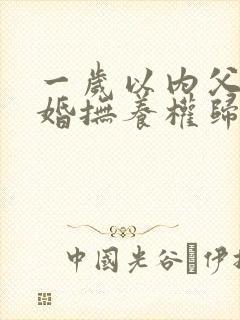 一歲以内父
婚撫養權歸
中國光谷 伊